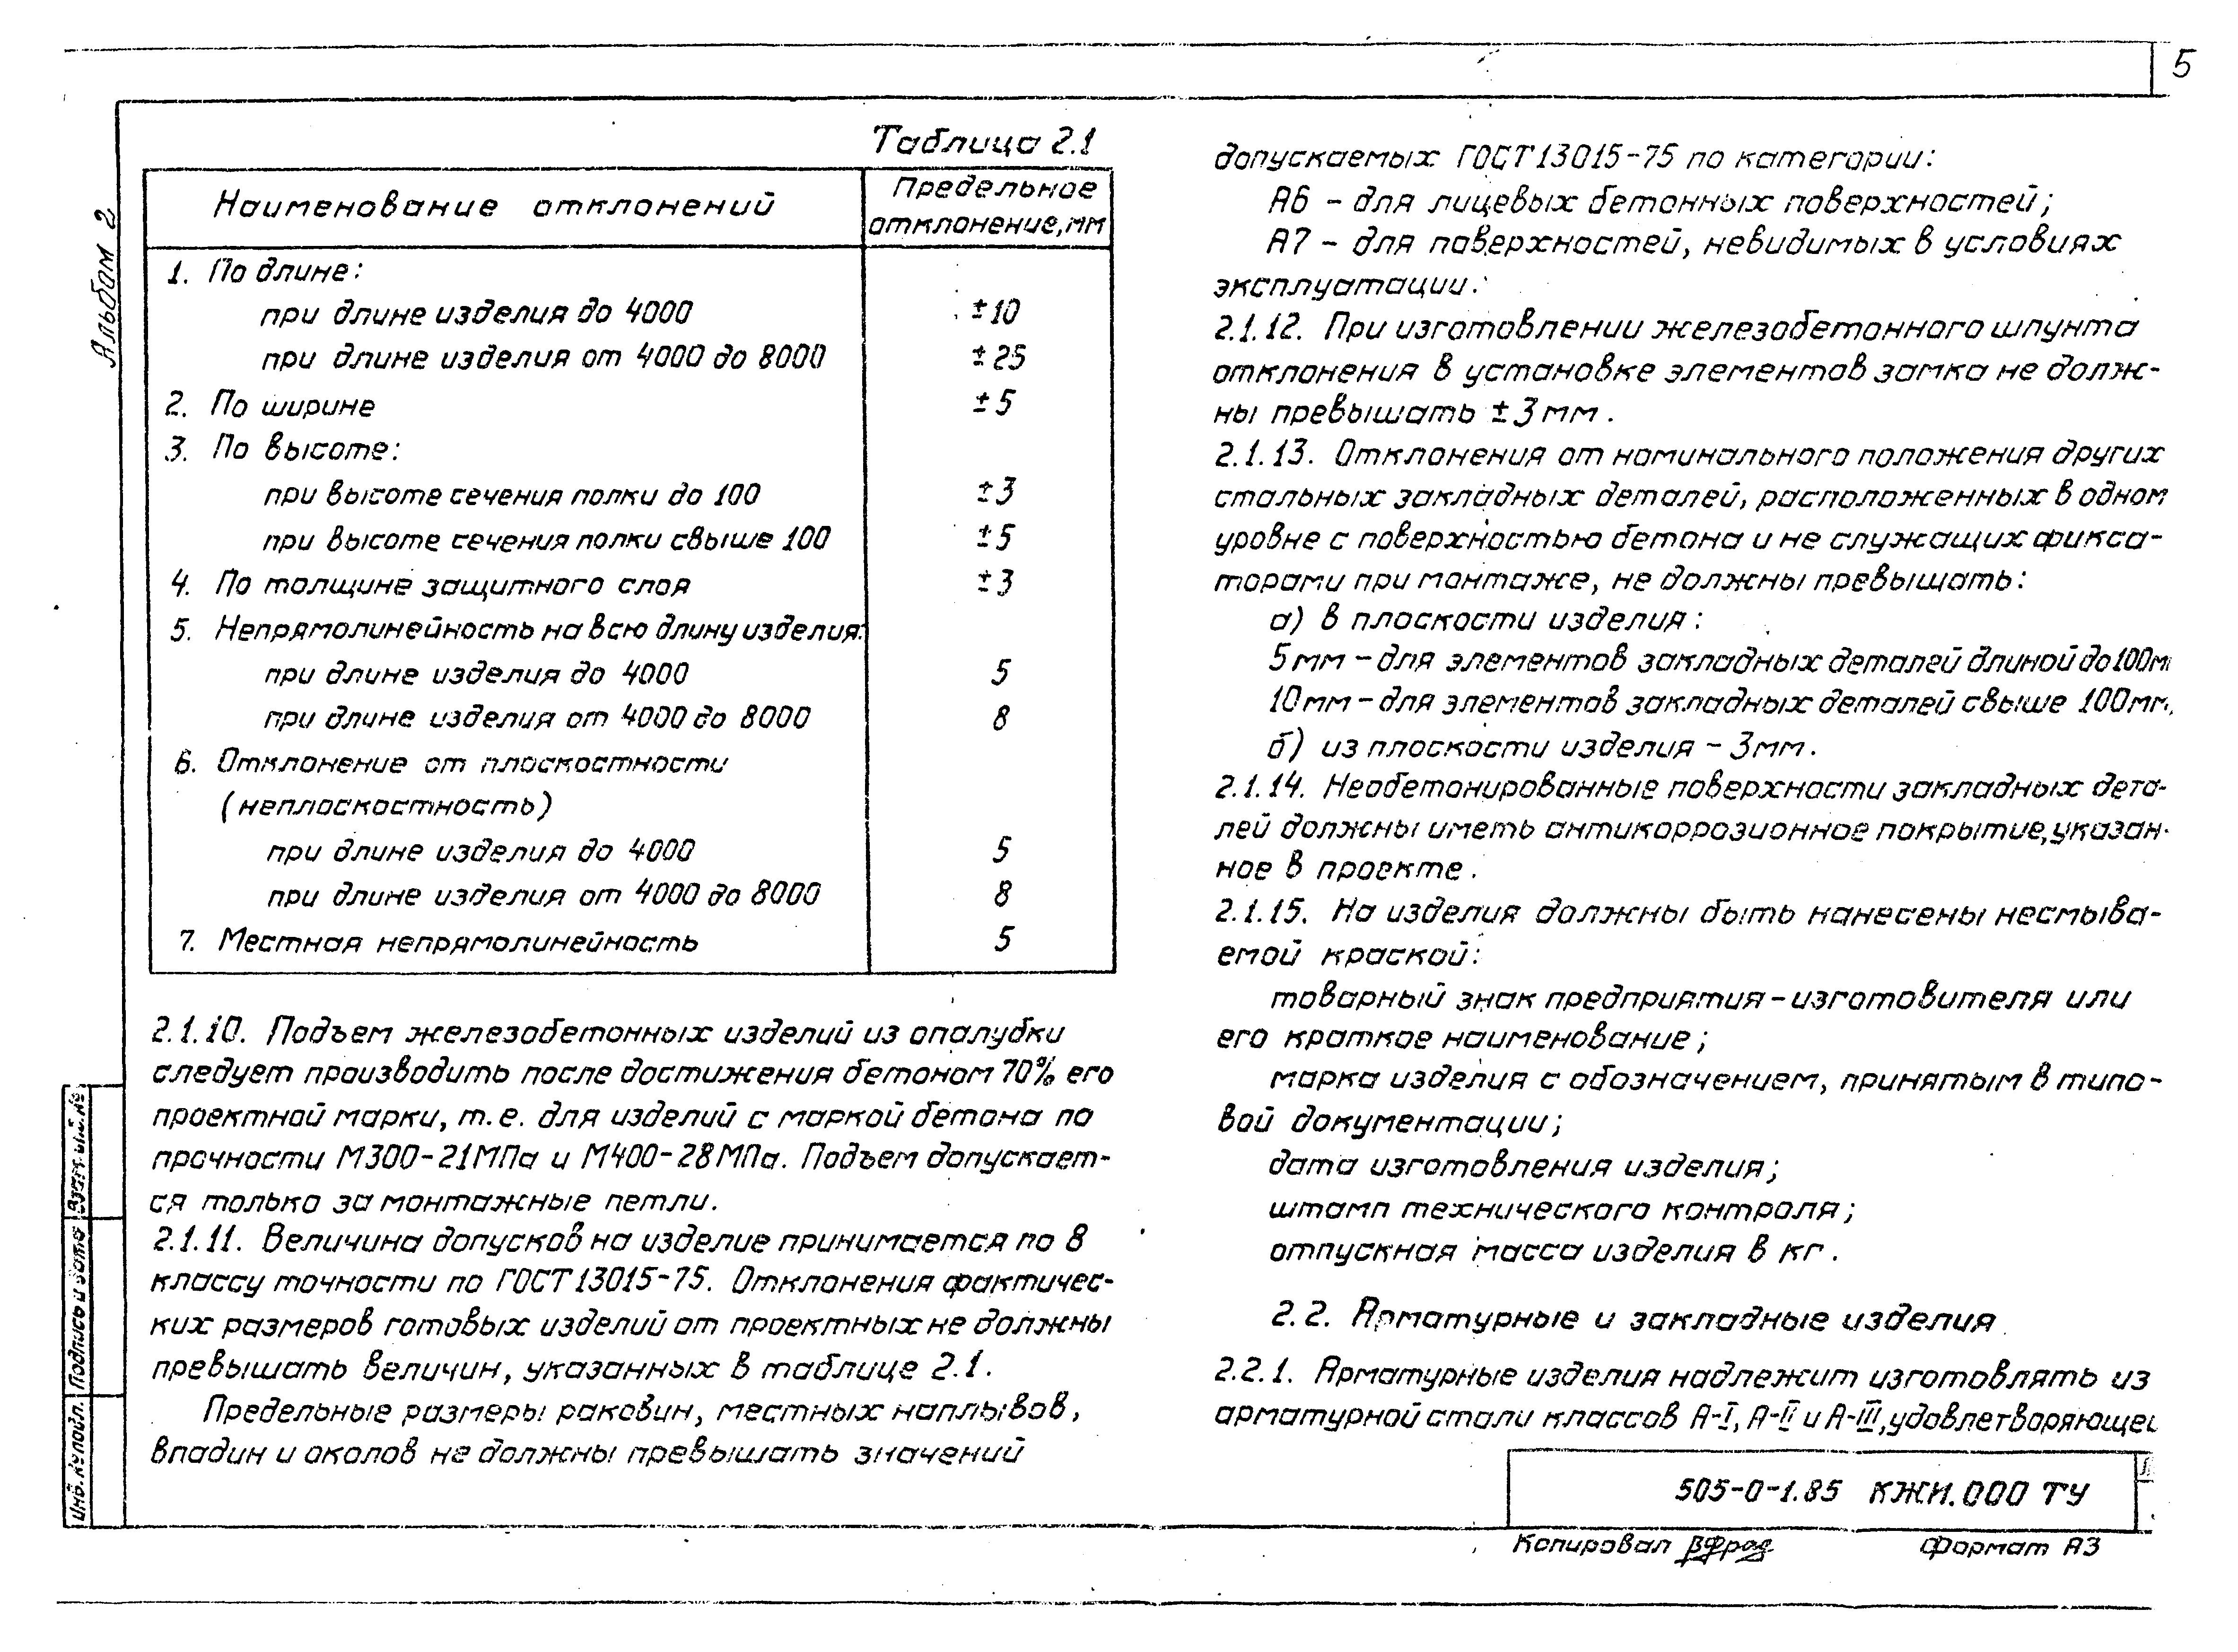 5
Альбом 2
Таблица 2.1
Наименование отклонений
Предельное
отклонение, мм
1. По длине:
при длине изделия до 4000 ±10
при длине изделия от 4000 до 8000 ±25
2. По ширине ±5
3. По высоте:
при высоте сечения полки до 100 ±3
при высоте сечения полки свыше 100 ±5
4. По толщине защитного слоя ±3
5. Непрямолинейность на всю длину изделия:
при длине изделия до 4000 5
при длине изделия от 4000 до 8000 8
6. Отклонение от плоскостности
(неплоскостность)
при длине изделия до 4000 5
при длине изделия от 4000 до 8000 8
7. Местная непрямолинейность 5
2.1.10. Подъем железобетонных изделий из опалубки
следует производить после достижения бетоном 70% его
проектной марки, т.е. для изделий с маркой бетона по
прочности М300-21МПа и М400-28МПа. Подъем допускает-
ся только за монтажные петли.
2.1.11. Величина допусков на изделие принимается по 8
классу точности по ГОСТ 13015-75. Отклонения фактичес-
ких размеров готовых изделий от проектных не должны
превышать величин, указанных в таблице 2.1.
Предельные размеры раковин, местных наплывов,
впадин и околов не должны превышать значений
допускаемых ГОСТ 13015-75 по категории:
А6 - для лицевых бетонных поверхностей;
А7 - для поверхностей, невидимых в условиях
эксплуатации.
2.1.12. При изготовлении железобетонного шпунта
отклонения в установке элементов замка не долж-
ны превышать ±3мм.
2.1.13. Отклонения от номинального положения других
стальных закладных деталей, расположенных в одном
уровне с поверхностью бетона и не служащих фикса-
торами при монтаже, не должны превышать:
а) в плоскости изделия:
5мм - для элементов закладных деталей длиной до 100м
10мм - для элементов закладных деталей свыше 100мм,
б) из плоскости изделия - 3мм.
2.1.14. Необетонированные поверхности закладных дета-
лей должны иметь антикоррозионное покрытие, указан-
ное в проекте.
2.1.15. На изделия должны быть нанесены несмыва-
емой краской:
товарный знак предприятия-изготовителя или
его краткое наименование;
марка изделия с обозначением, принятым в типо-
вой документации;
дата изготовления изделия;
штамп технического контроля;
отпускная масса изделия в кг.
2.2. Арматурные и закладные изделия
2.2.1. Арматурные изделия надлежит изготовлять из
арматурной стали классов А-I, А-II и А-III, удовлетворяющей
505-0-1.85 КЖИ.000 ТУ
Копировал
Формат А3
Инв. № подл.
Подпись и дата
Взам. инв. №